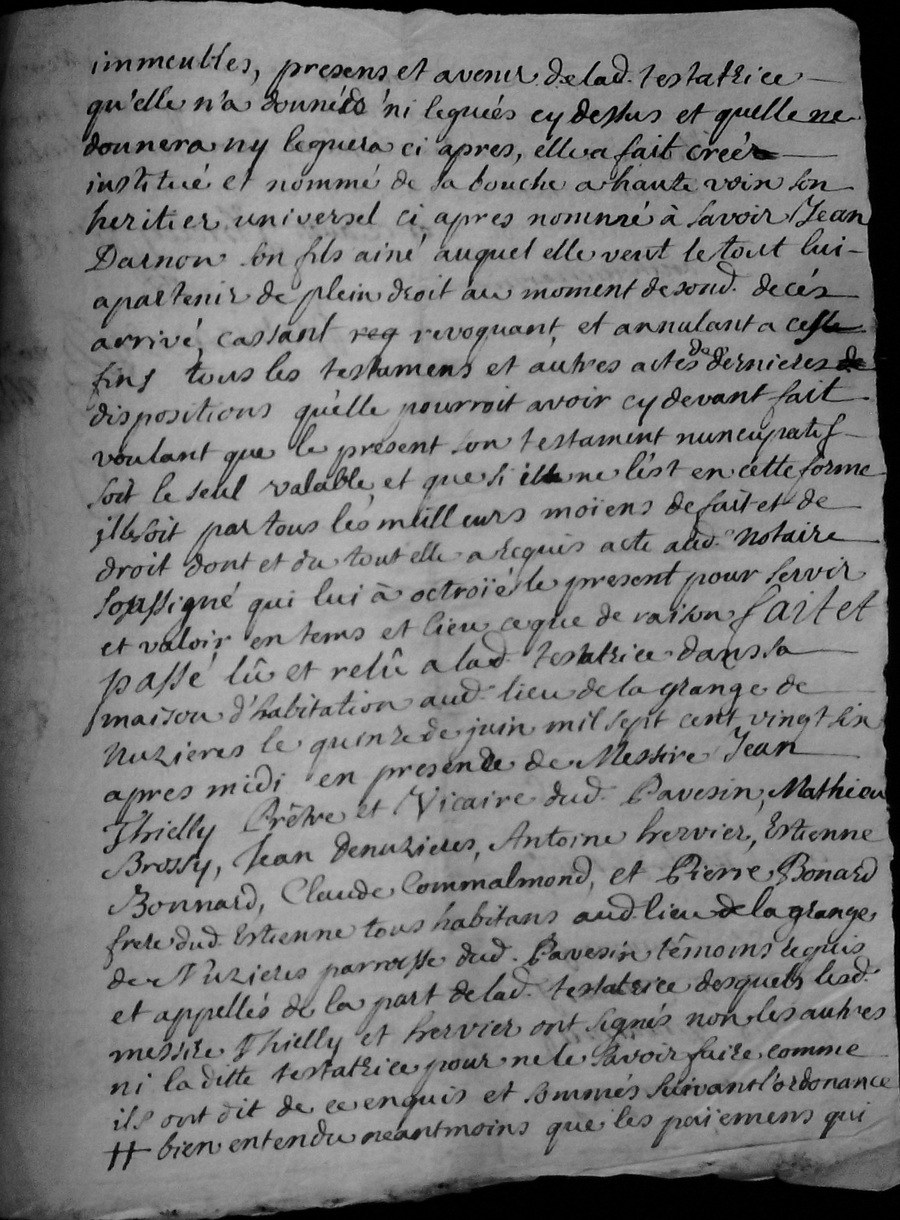 immeubles, presens et avenir de lad. testatrice
qu'elle n'a donnéds ni legués cy dessus et quelle ne
donnera ny leguera ci apres, elle a fait creér
institué et nommé de sa bouche a haute voix son
heritier universel ci apres nommé à savoir Jean
Darnon son fils ainé auquel elle veut le tout lui
apartenir de plein droit au moment de sond. decés
arrivé, cassant req revoquant, et annulant a ceste
fins tous les testamens et autres actes de dernieres de
dispositions qu'elle pourroit avoir cy devant fait
voulant que le present son testament nuncupatif
soit le seul valable, et que si ne l'est en cette forme
il soit par tous les meilleurs moïens de fait et de
droit dont et du tout elle a requis acte aud. notaire
soussigné qui lui à octroïé le present pour servir
et valoir en tems et lieu ce que de raison fait et
passé lû et relû a lad. testatrice dans sa
maison d'habitation aud. lieu de la grange de
Nuzieres le quinze de juin mil sept cent vingt six
apres midi en presende de Messire Jean
Thielly Prêtre et Vicaire dud. Pavesin, Mathieu
Brossy, Jean denuzieres, Antoine hervier, Estienne
Bonnard, Claude Commalmond, et Pierre Bonard
frere dud. Estienne tous habitans aud. lieu de la grange
de Nuzieres parroisse dud. Pavesin têmoins requis
et appellés de la part de lad. testatrice desquels lesd.
messire Thielly et hervier ont signés non les autres
ni la ditte testatrice pour ne le savoir faire comme
ils ont dit de ce enquis et sommés suivant l'ordonance
# bien entendu neantmoins que les paiemens qui